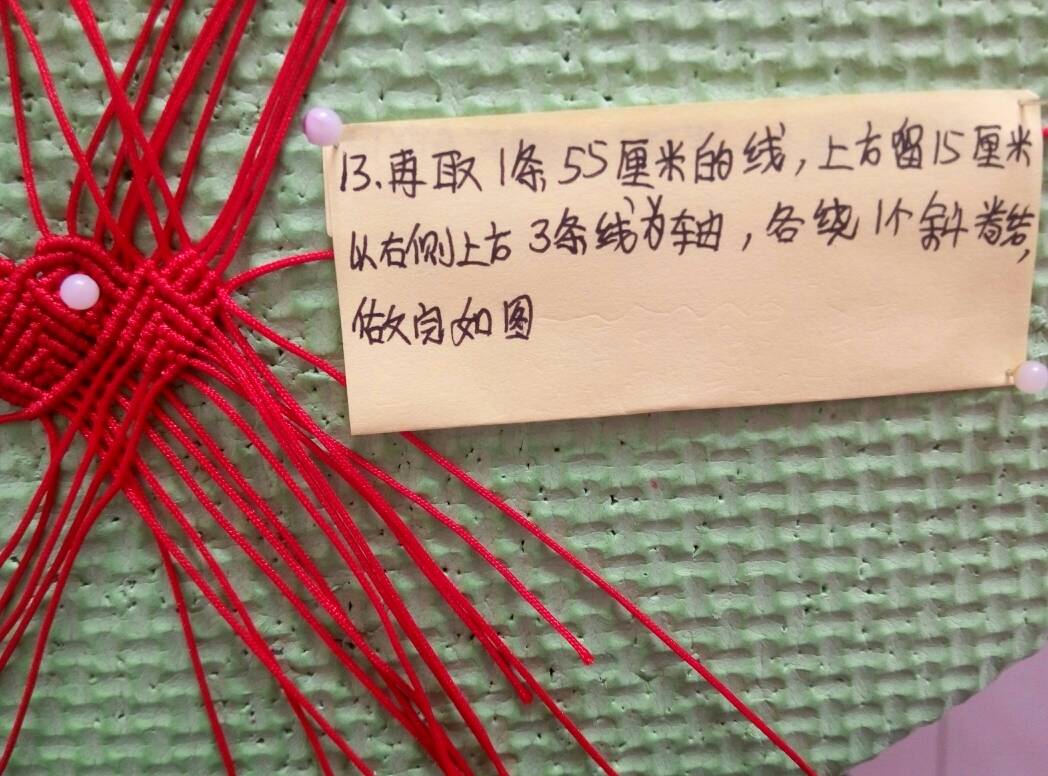 13.再取1条55厘米的线,上方留15厘米
以右侧上方3条线为轴,各绕1个斜卷结,
做完如图